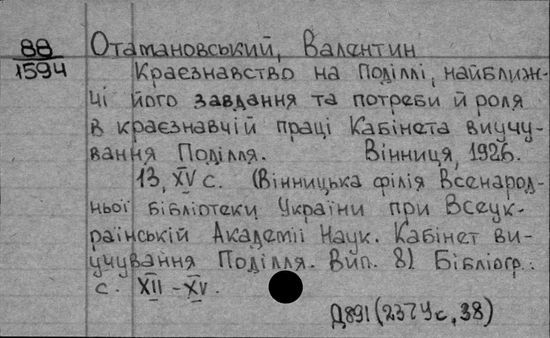 88
1594
Отамановський, Валентин
Краєзнавство на Поділлі, найближ-
чі його завдання та потреби й роля
в краєзнавчій праці Кабінета виучу-
вання Поділля. Вінниця, 1926.
13, XV с. (Вінницька філія Всенарод-
ньої бібліотеки України при Всеук-
раїнській Академії Наук. Кабінет ви-
учування Поділля. Вип. 8) Бібліогр.:
с. XII-XV.
Д891(237Ус,38)